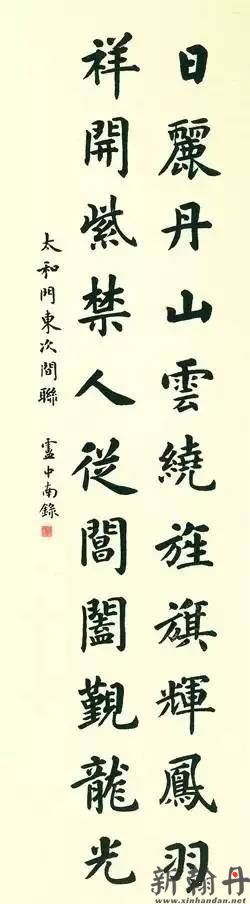 日麗丹山雲繞旌旗輝鳳羽
祥開紫禁人從閶闔覲龍光
太和門東次間聯 盧中南錄
新翰丹
www.xinhandan.net